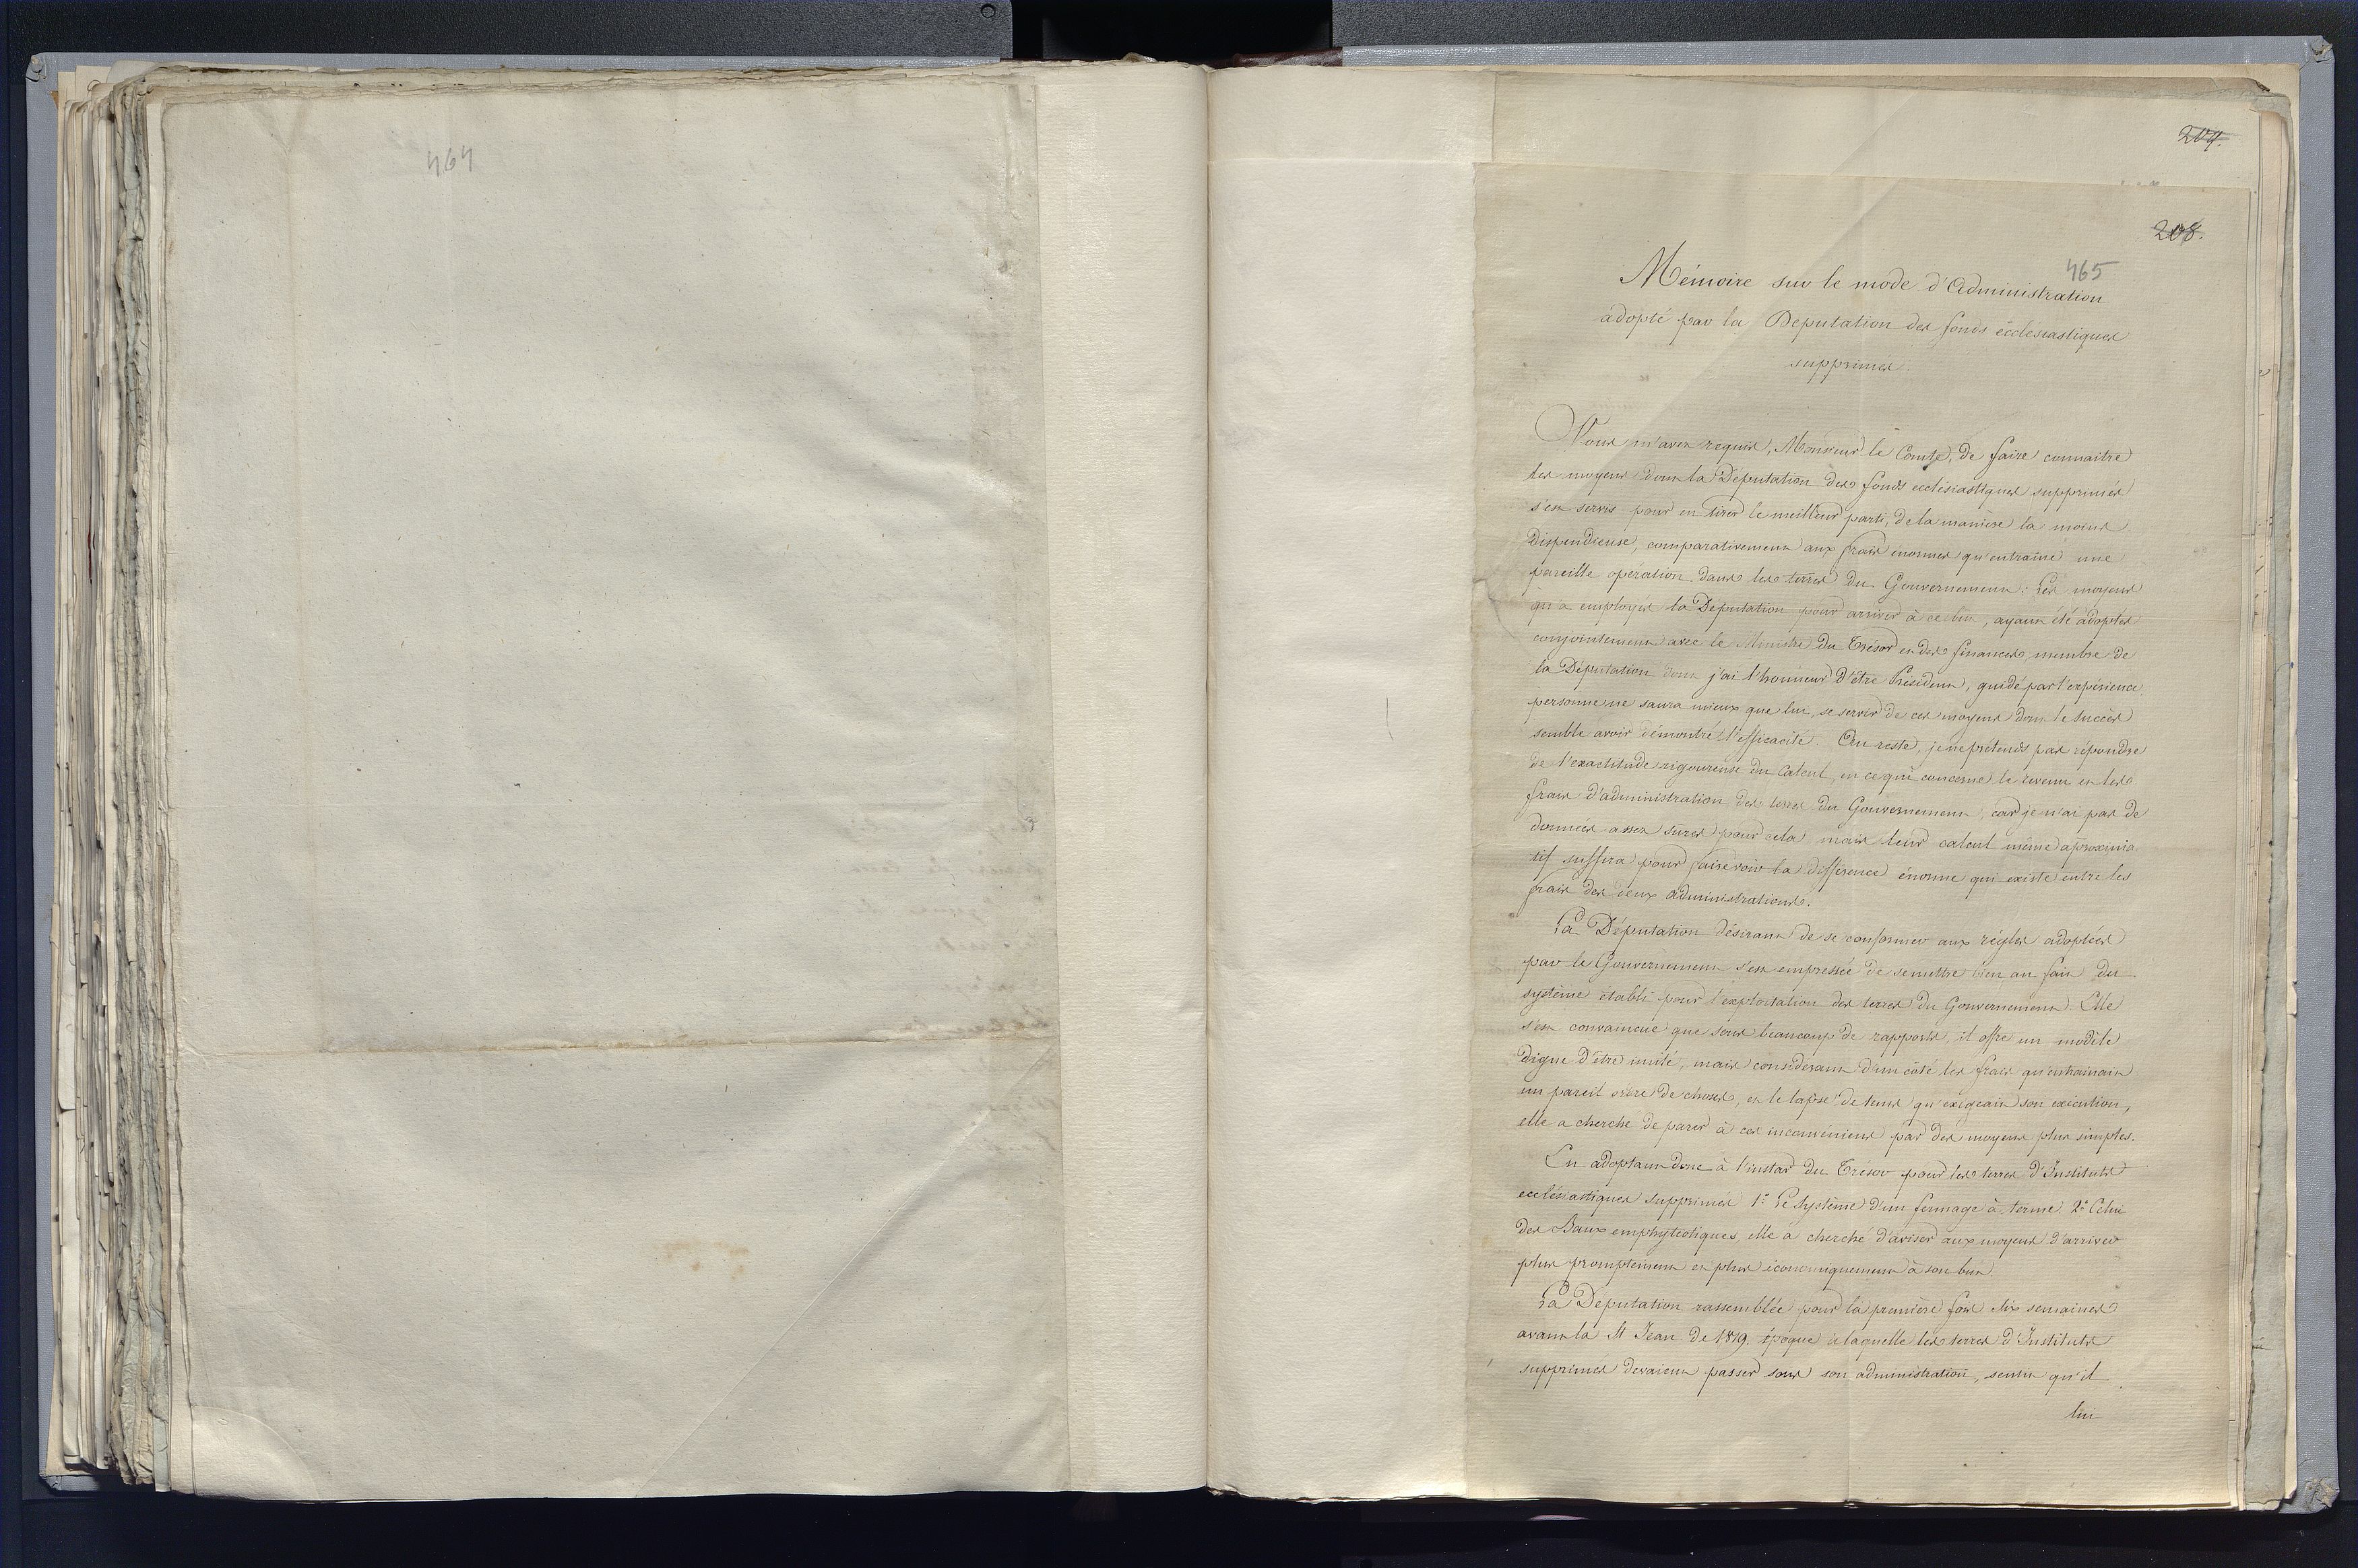 464
204.
208.
465
Mémoire sur le mode d'Administration
adopté par la Deputation des fonds écclésiastiques
supprimés.
Vous m'avez requis, Monsieur le Comte, de faire connaitre
les moyens dont la Députation des fonds ecclésiastiques supprimés
s'est servis pour en tirer le meilleur parti, de la manière la moins
dispendieuse, comparativement aux frais enormes qu'entraine une
pareille opération dans les terres du Gouvernement: Les moyens
qu'a employés la Députation pour arriver à ce but, ayant été adoptés
conjointement avec le Ministre du Trésor et des finances membre de
la Députation dont j'ai l'honneur d'être Président, guidé par l'expérience
personne ne saura mieux que lui, se servir de ces moyens dont le succès
semble avoir démontré l'efficacité. Au reste, je ne prétends pas répondre
de l'exactitude rigoureuse du Calcul, en ce qui concerne le revenu et les
frais d'administration des terres du Gouvernement, car je n'ai pas de
données assez sûres pour cela mais leur calcul même aproxima
tif suffira pour faire voir la différence énorme qui existe entre les
frais des deux administrations.
La Députation désirant de se conformer aux régles adoptées
par le Gouvernement s'est empressée de se mettre bien au fait du
système établi pour l'exploitation des terres du Gouvernement. Elle
s'est convaincue que sous beaucoup de rapports, il offre un modèle
digne d'être imité, mais considérant d'un côté les frais qu'entrainait
un pareil ordre de choses, et le lapse de tems qu'exigeait son exécution,
elle a cherché de parer à ces inconvéniens par des moyens plus simples.
En adoptant donc à l'instar du Trésor pour les terres d'Instituts
ecclésiastiques supprimés 1° Le Système d'un fermage à terme 2° Celui
des Baux emphytéotiques, elle a cherché d'aviser aux moyens d'arriver
plus promptement et plus économiquement à son but
La Députation rassemblée pour la première fois six semaines
avant la St Jean de 1819. époque à laquelle les terres d'Instituts
supprimés devaient passer sous son administration, sentit qu'il
lui